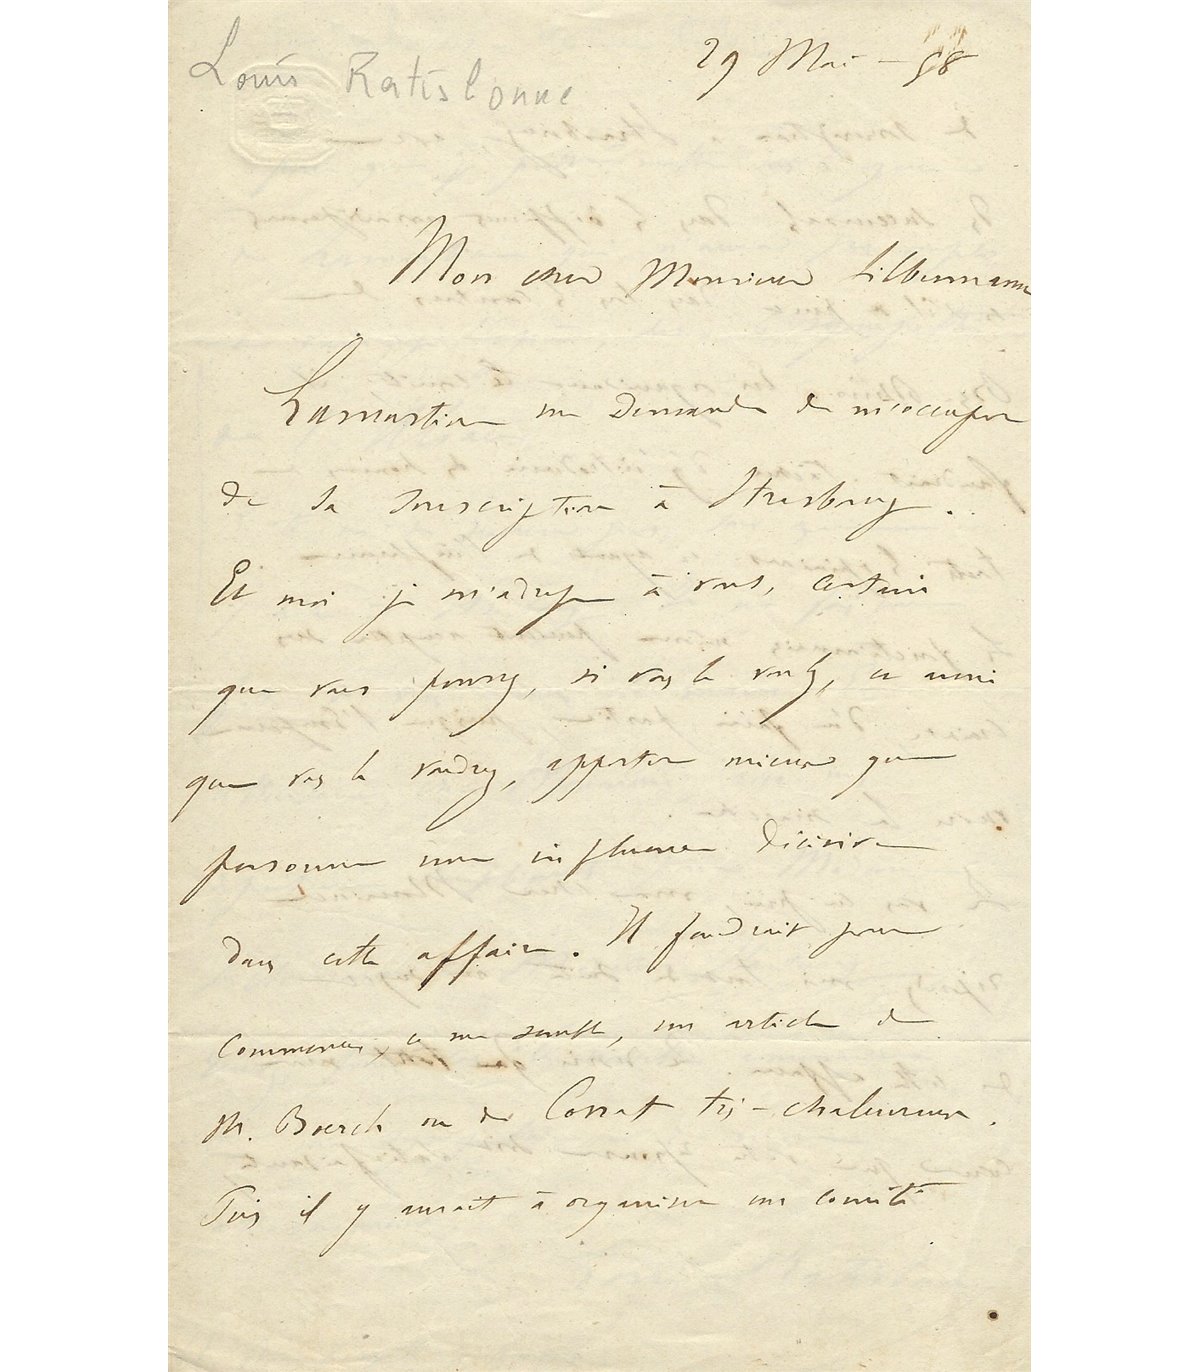 Louis Ratisbonne
29 Mai - 58
Mon cher Monsieur Silbermann
Lamartine me demande de m'occuper
de sa souscription à Strasbourg.
Et moi je m'adresse à vous, certain
que vous pouvez, si vous le voulez, et aussi
que vous le voudrez, apporter mieux que
personne une influence décisive
dans cette affaire. Il faudrait pour
commencer, ce me semble, un article de
M. Boersch ou de très-chaleureux.
Puis il y aurait à organiser un comité